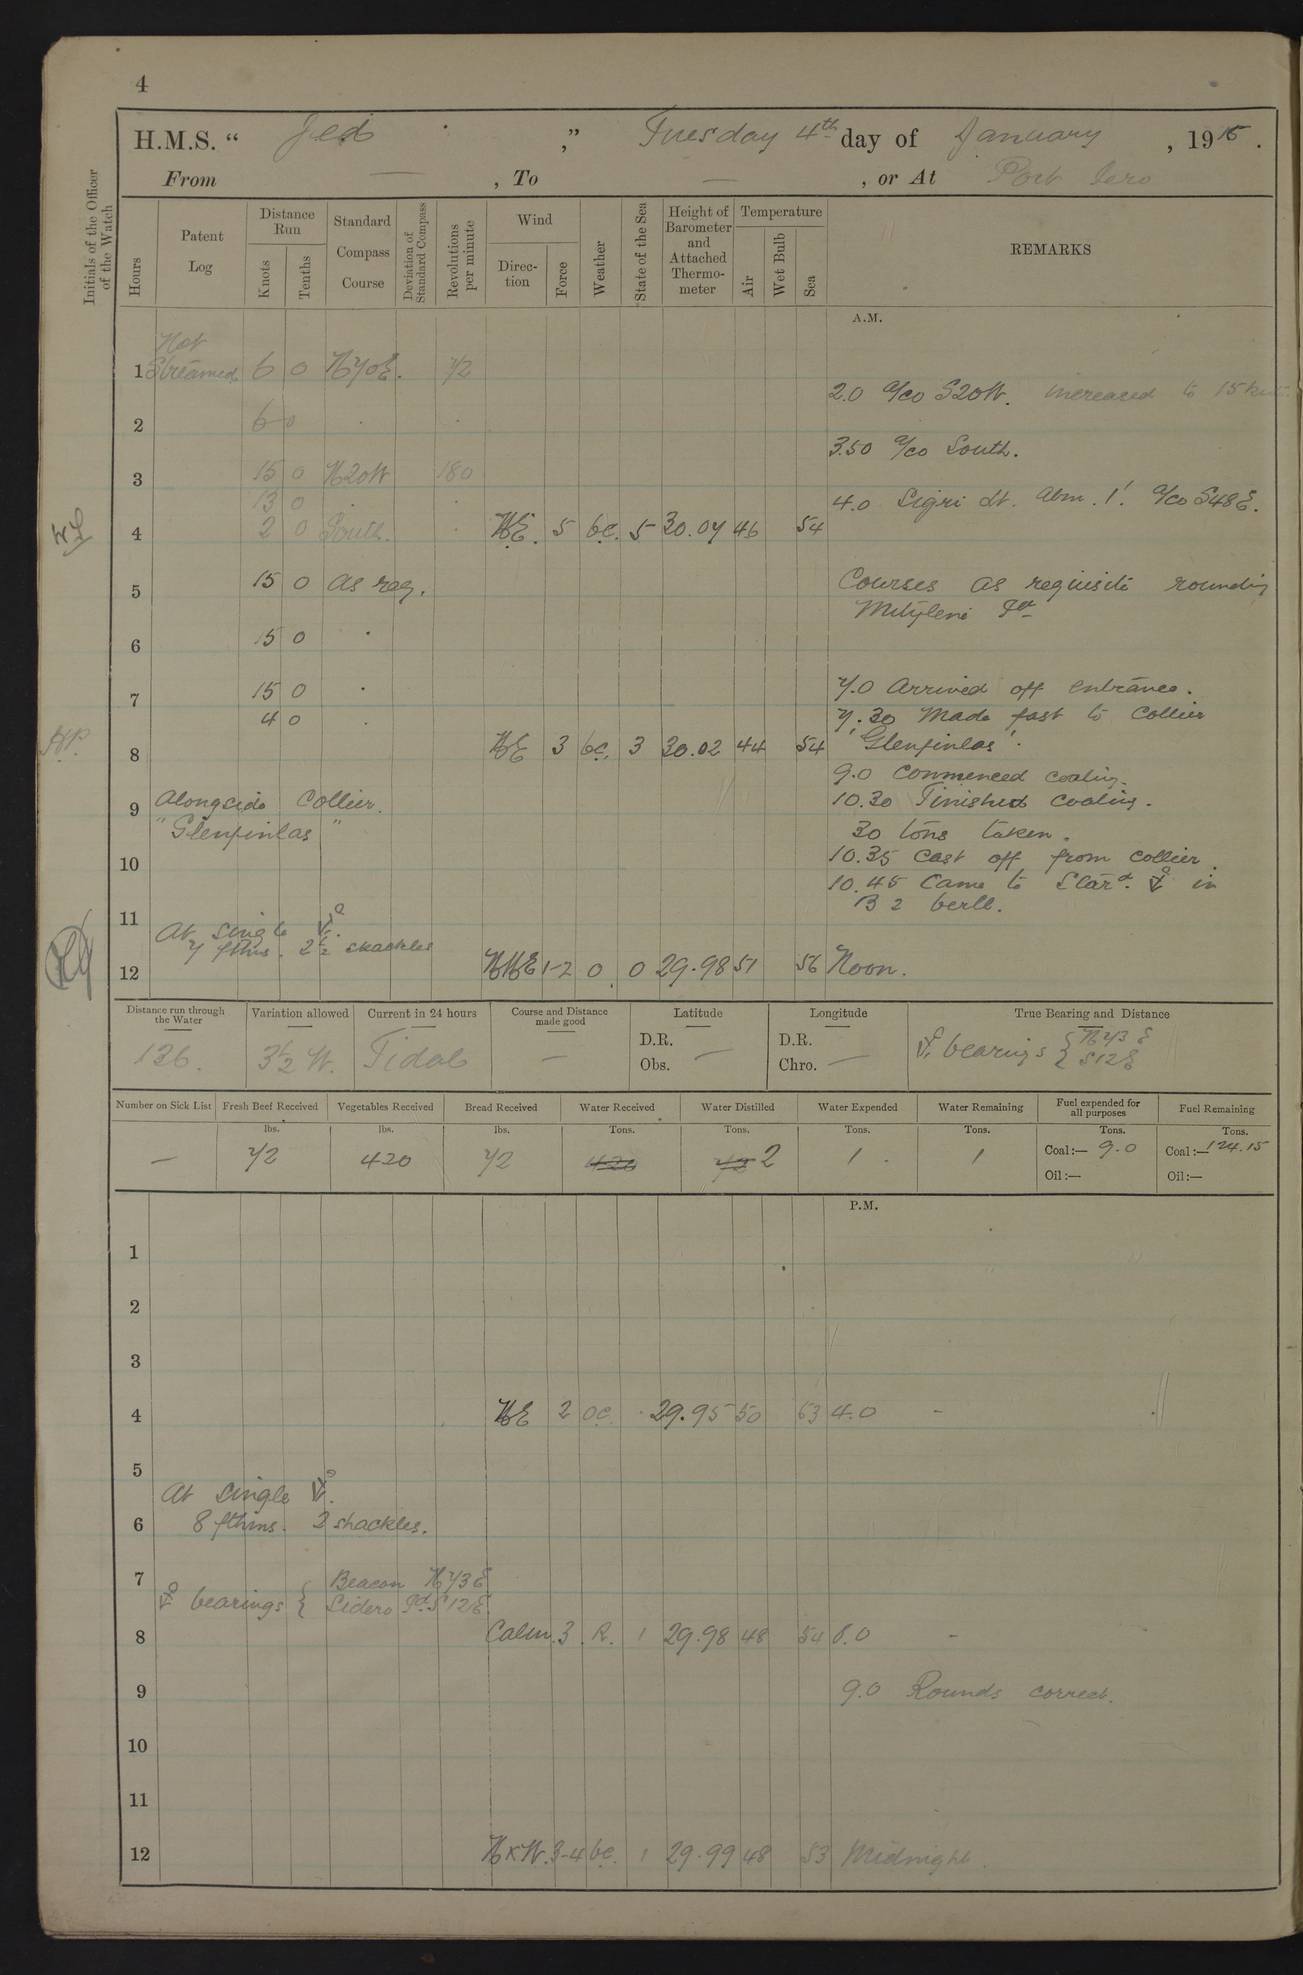 4
H.M.S. “ Jed ,” Tuesday 4th day of January , 1915 .
From — , To — , or At Port Iero
Initials of the Officer of the Watch
Hours
Patent Log
Distance Run
Knots
Tenths
Standard Compass Course
Deviation of Standard Compass
Revolutions per minute
Wind
Direction
Force
Weather
State of the Sea
Height of Barometer and Attached Thermometer
Temperature
Air
Wet Bulb
Sea
REMARKS
A.M.
Not
1 Streamed 6 0 N70E. 72
2.0 a/co S20W. increased to 15 knts
2 6 0 .
3.50 a/co South.
3 15 0 N20W 180
13 0 .
4.0 Sigri Lt. abm. 1'. a/co S48E.
4 2 0 South. . NE. 5 bc. 5 30.04 46 54
5 15 0 as req. Courses as requisite rounding
Mitylene Id
6 15 0 .
7 15 0 . 7.0 Arrived off entrance.
4 0 . 7.30 Made fast to Collier
8 NE 3 bc. 3 30.02 44 54 'Glenfinlas'.
9.0 Commenced coaling.
9 Alongside Collier. 10.30 Finished coaling.
"Glenfinlas" 30 tons taken.
10 10.35 Cast off from collier.
10.45 Came to Stard. in
B 2 berth.
11 At single
7 fthms. 2½ shackles
12 NNE 1-2 0 0 29.98 51 56 Noon.
Distance run through the Water
136.
Variation allowed
3½ W.
Current in 24 hours
Tidal
Course and Distance made good
—
Latitude
D.R.
Obs. —
Longitude
D.R.
Chro. —
True Bearing and Distance
bearings { N73 E
S12E
Number on Sick List
—
Fresh Beef Received
lbs.
72
Vegetables Received
lbs.
420
Bread Received
lbs.
72
Water Received
Tons.
420
Water Distilled
Tons.
72 2
Water Expended
Tons.
1 .
Water Remaining
Tons.
1
Fuel expended for all purposes
Tons.
Coal:— 9.0
Oil:—
Fuel Remaining
Tons.
Coal:— 124.15
Oil:—
P.M.
1
2
3
4 NE 2 oc. . 29.95 50 53 4.0 -
5
At single
6 8 fthms. 3 shackles.
7 Beacon N73E
bearings { Sidero Id S12E
8 Calm. 3 R. 1 29.98 48 54 8.0 -
9 9.0 Rounds correct.
10
11
12 NxW. 3-4 bc. 1 29.99 48 53 Midnight.